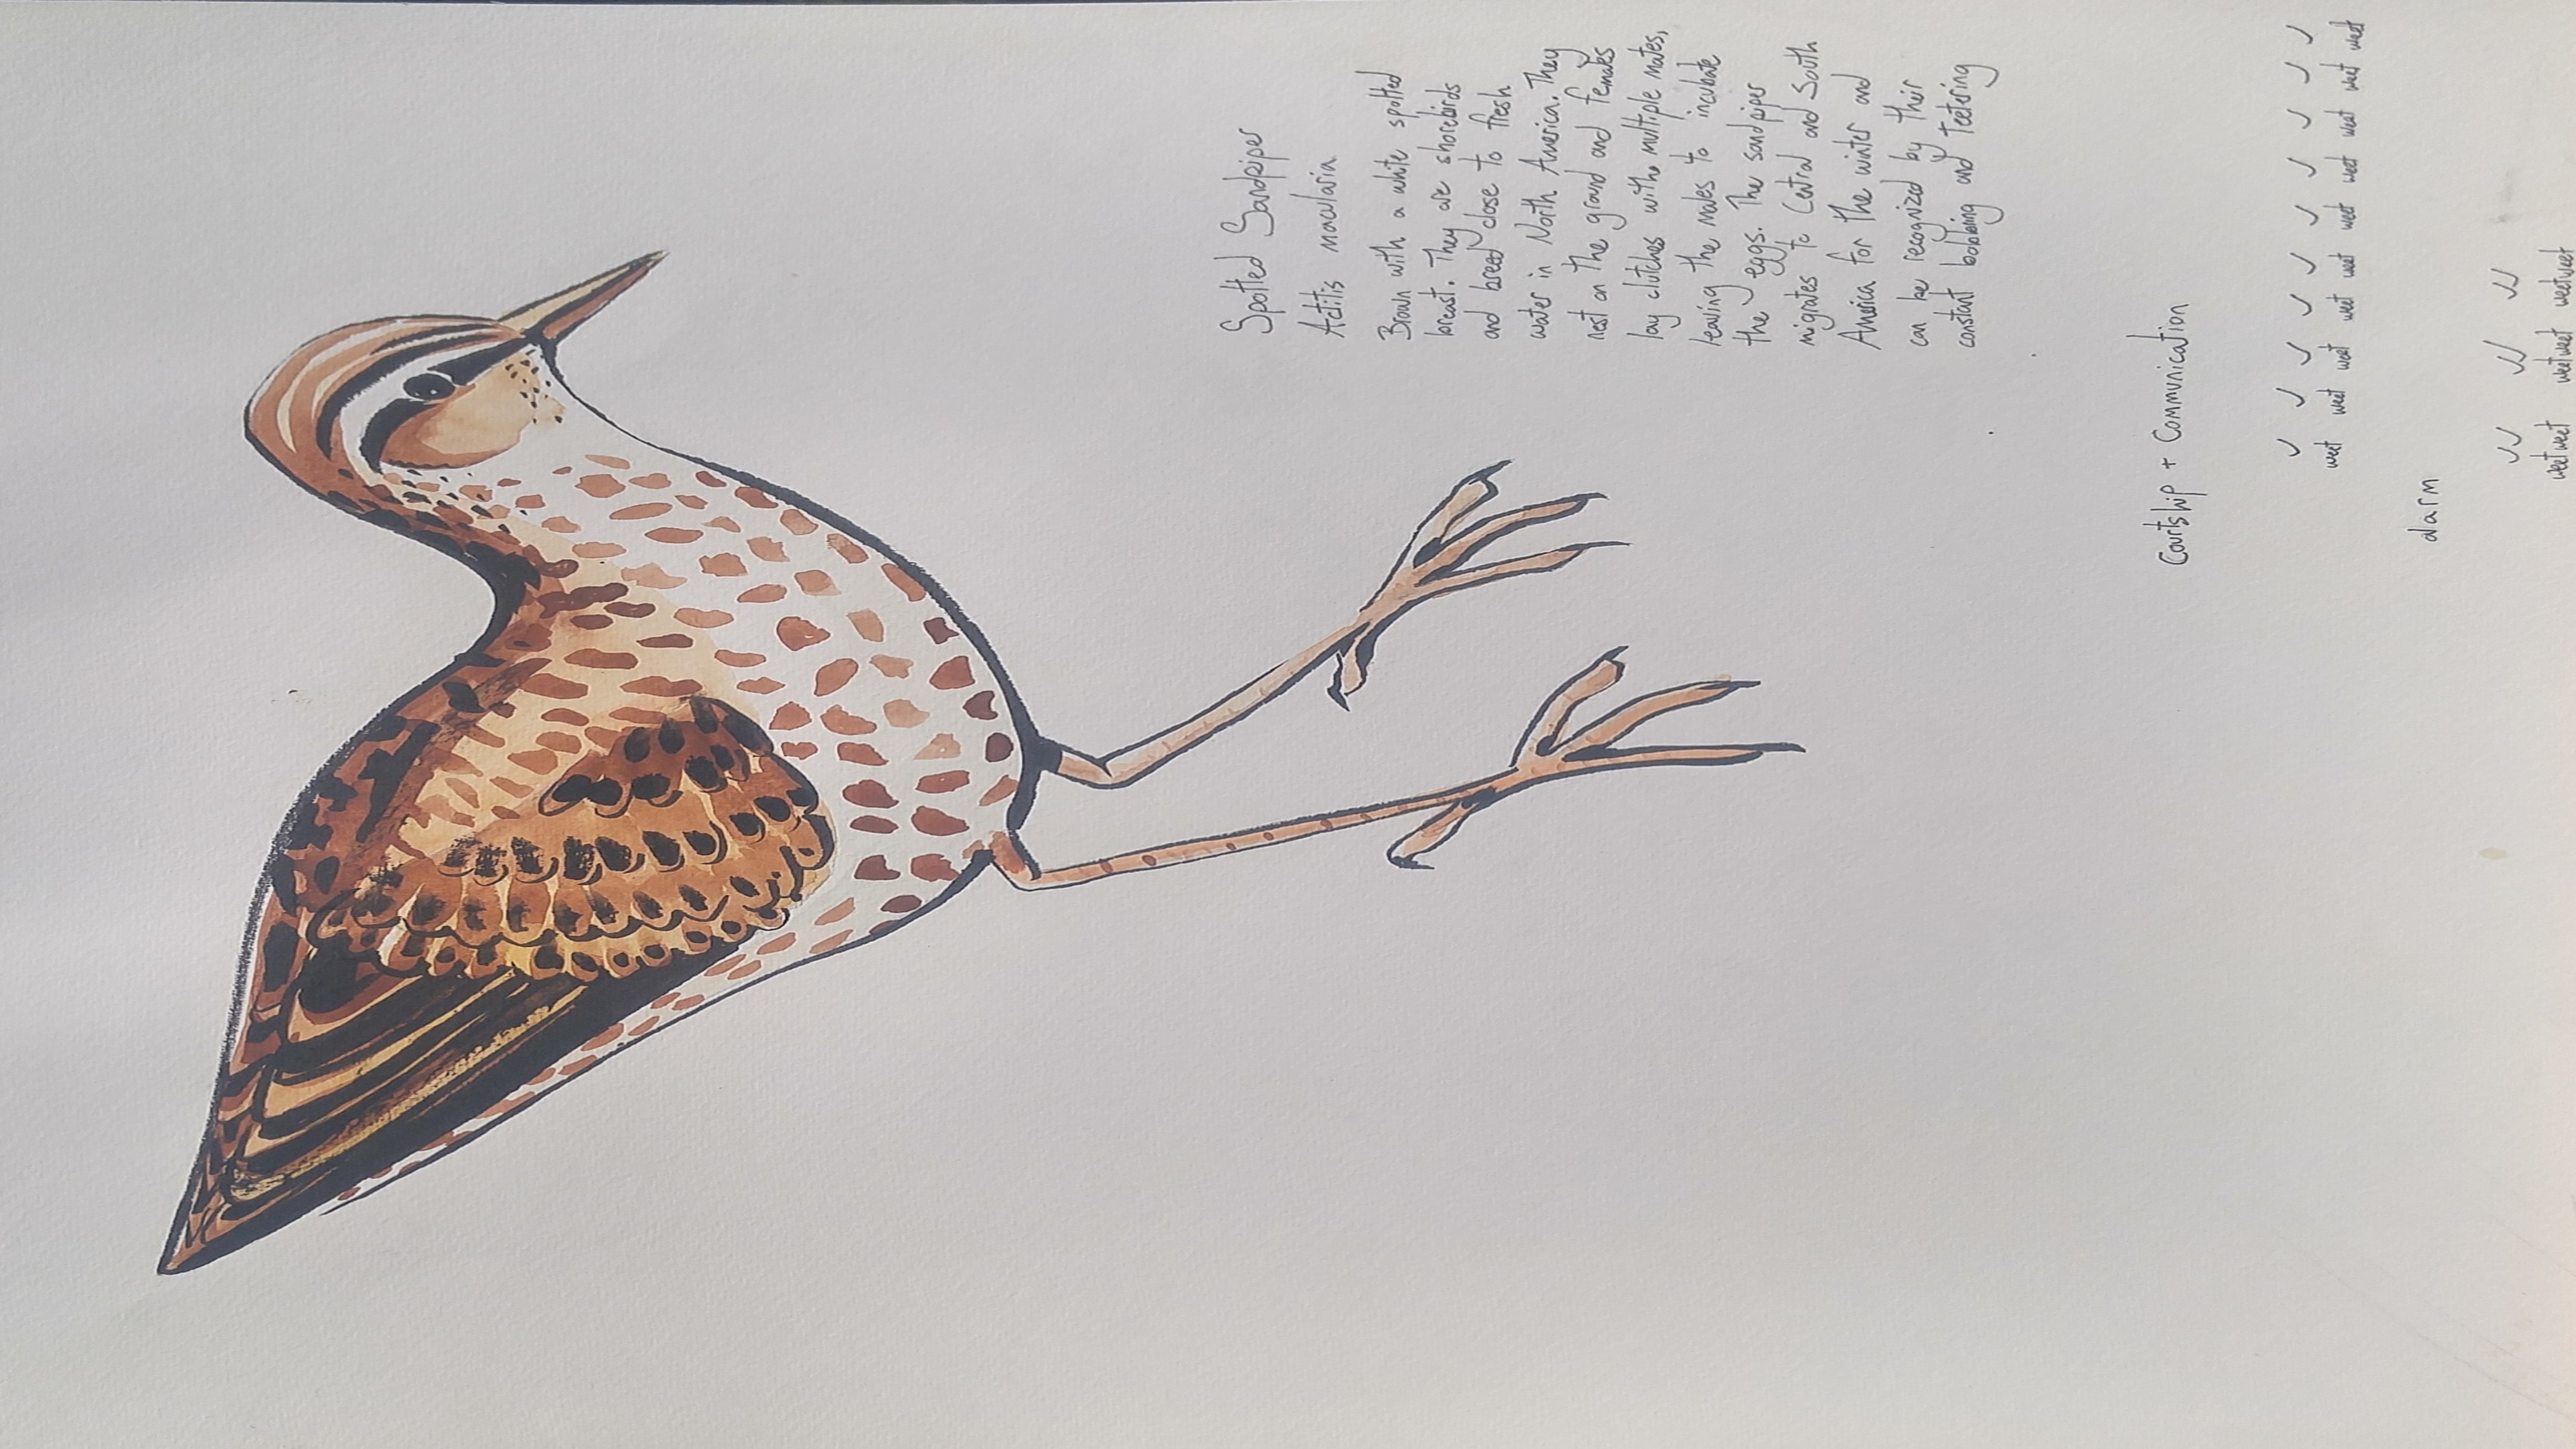 Spotted Sandpiper
Actitis macularia
Brown with a white spotted
breast. They are shorebirds
and breed close to fresh
water in North America. They
nest on the ground and females
lay clutches with multiple mates,
leaving the males to incubate
the eggs. The sandpiper
migrates to Central and South
America for the winter and
can be recognized by their
constant bobbing and teetering
Courtship + Communication
weet weet weet weet weet weet weet weet weet weet
alarm
weetweet weetweet weetweet